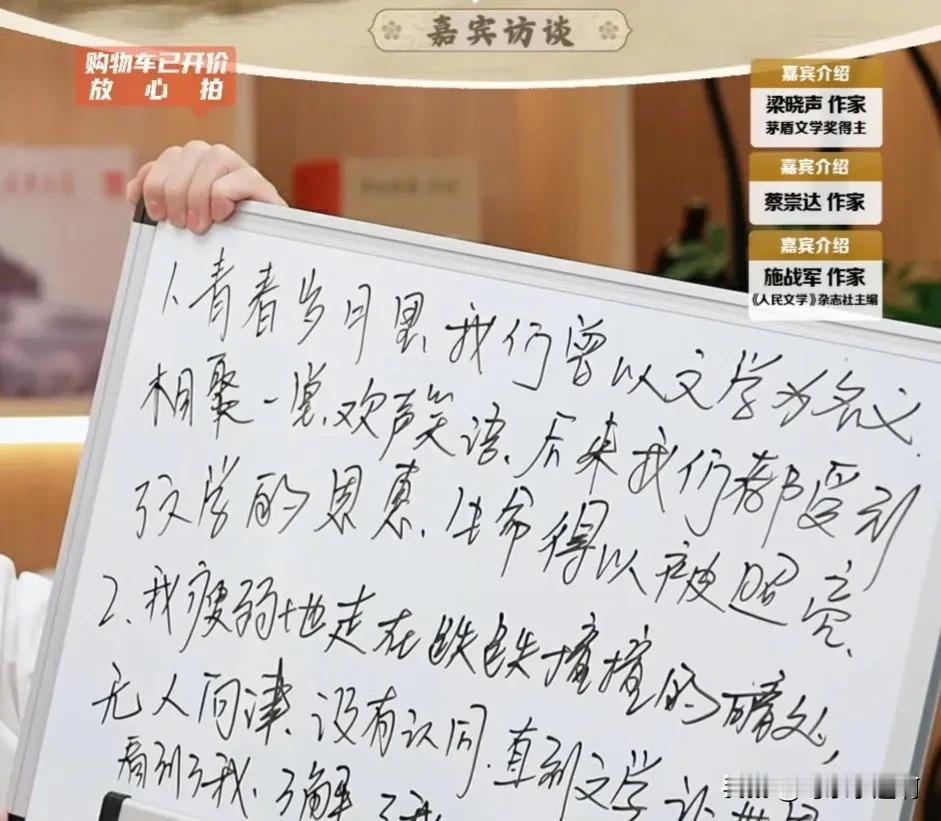 嘉宾访谈
购物车已开价
放心拍
嘉宾介绍
梁晓声 作家
茅盾文学奖得主
嘉宾介绍
蔡崇达 作家
嘉宾介绍
施战军 作家
《人民文学》杂志社主编
1、青春岁月里、我们曾以文学为名义、
相聚一堂、欢声笑语、后来我们都受到
了文学的恩惠、生命得以被照亮、
2、我瘦弱地走在跌跌撞撞的暗处,
无人问津、没有认同、直到文学让世界
看到了我、了解了我